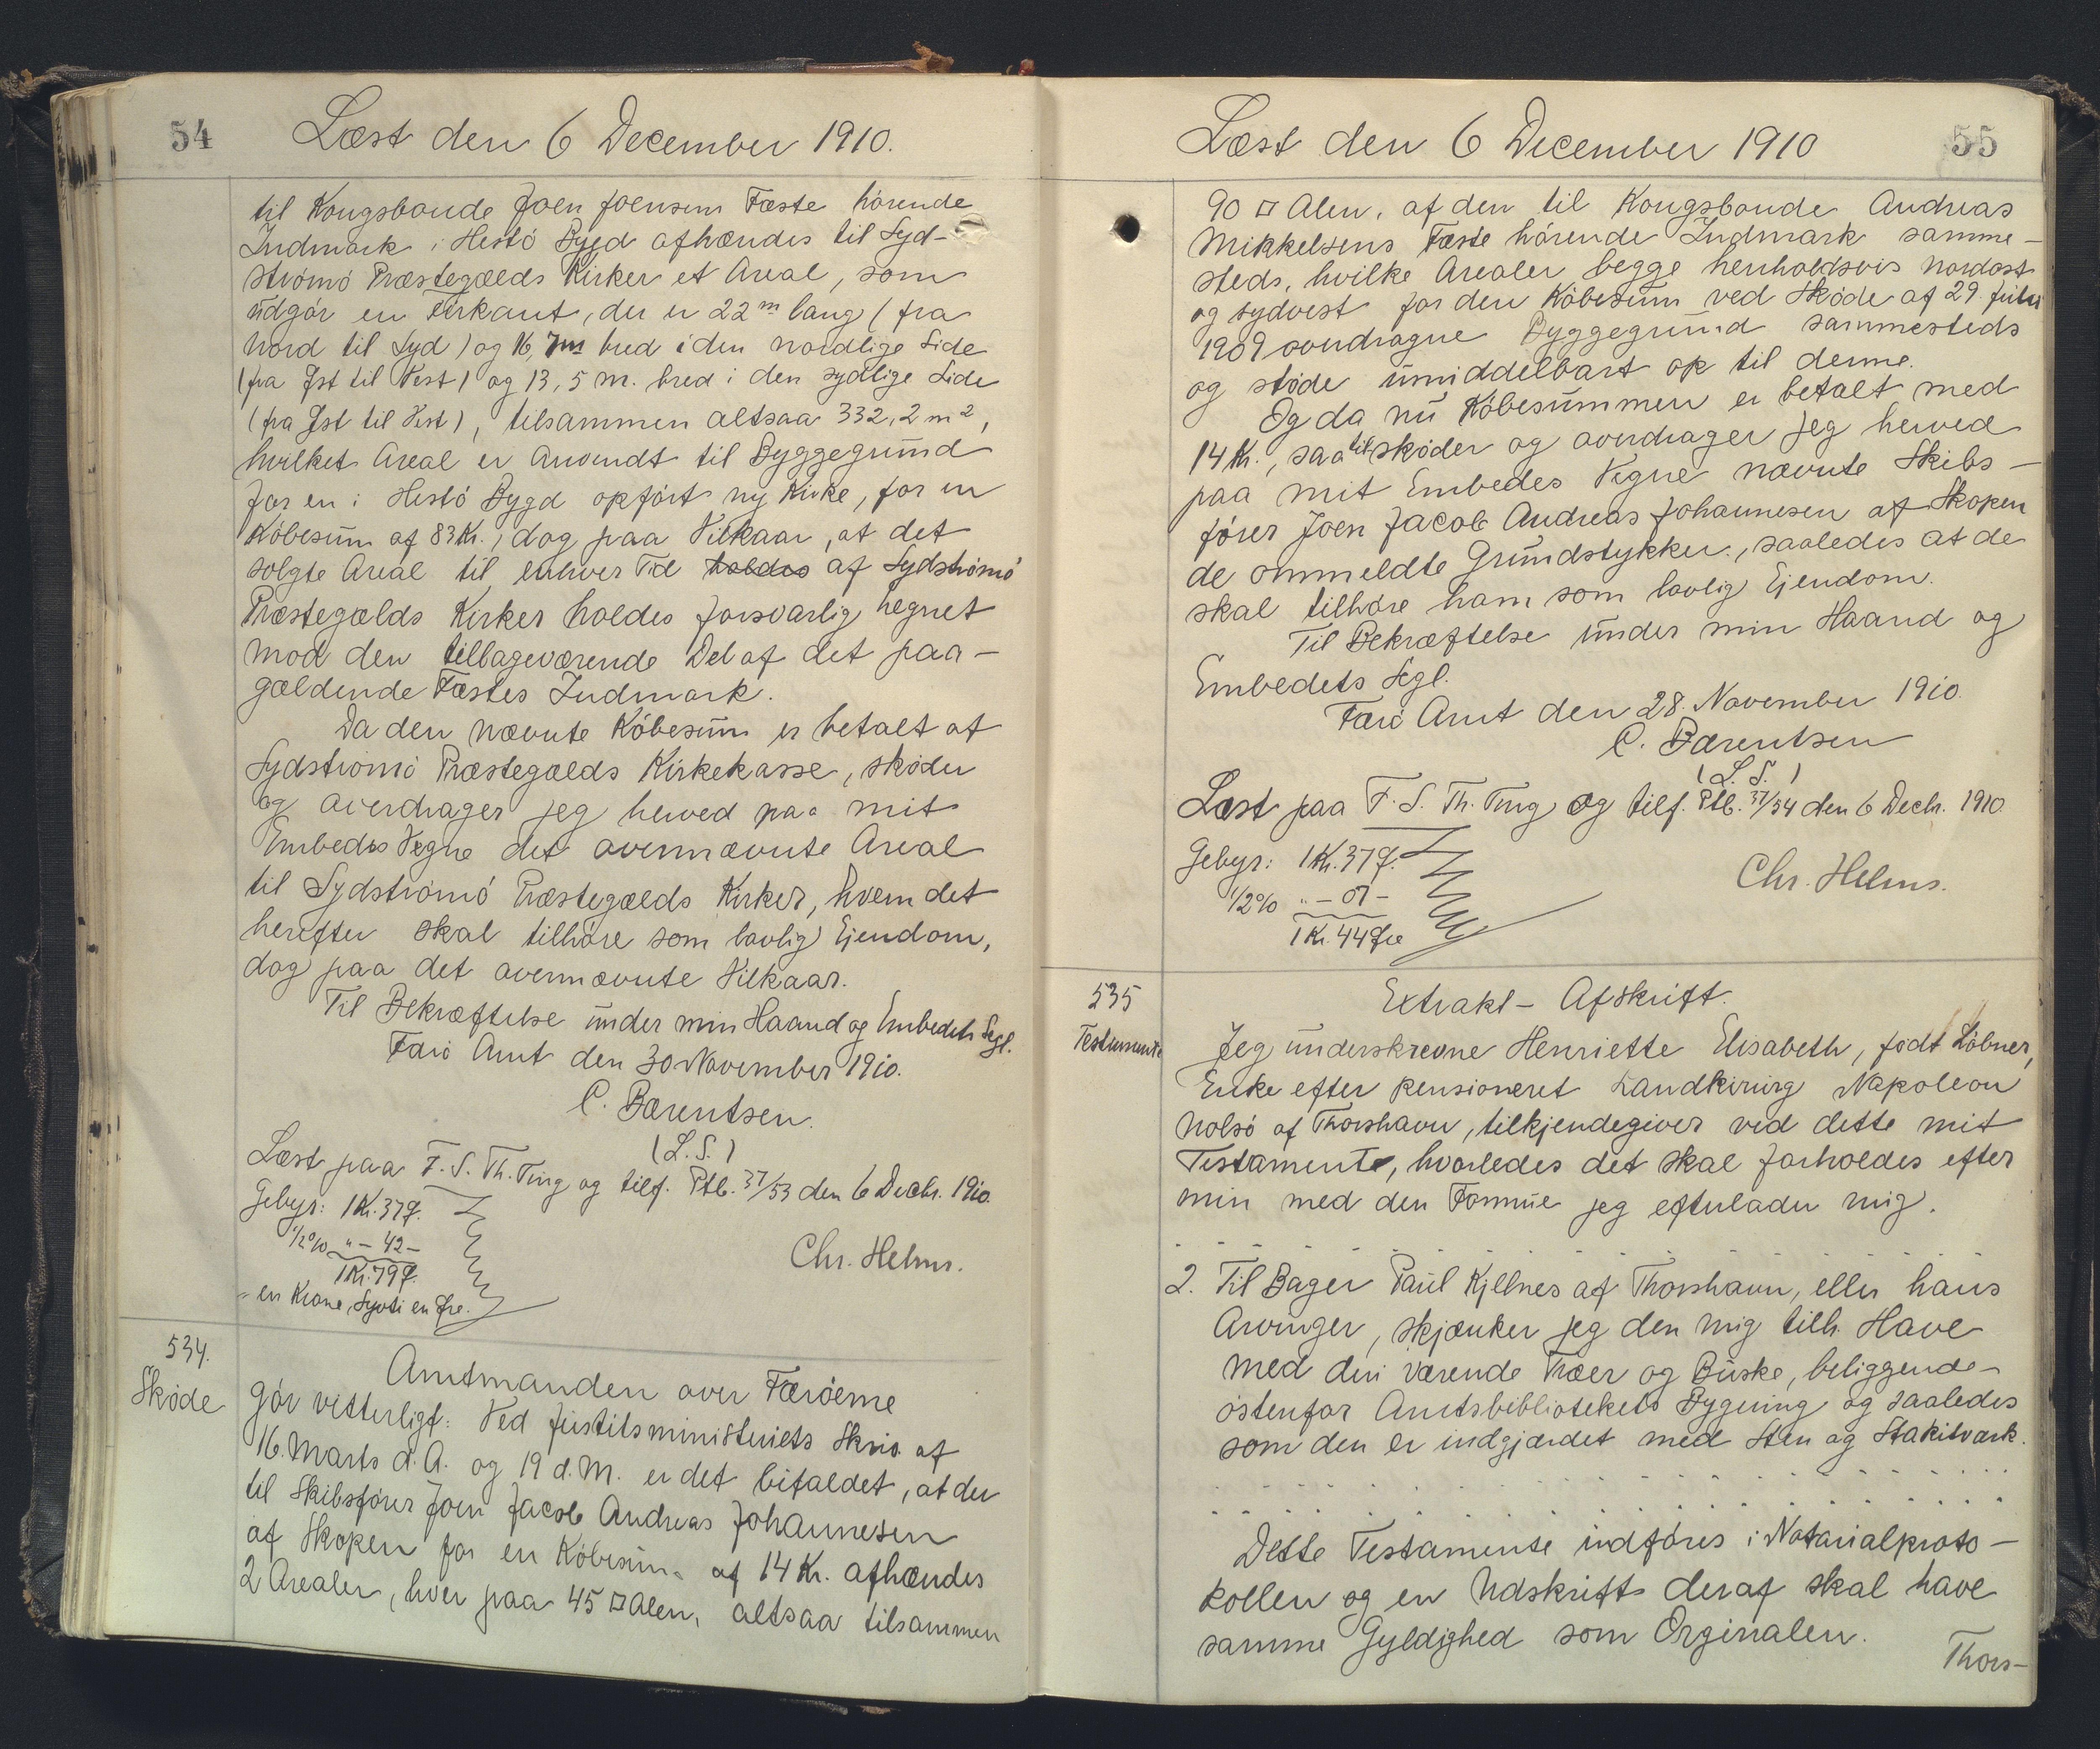 54
Læst den 6 December 1910.
til Kongsbonde Joen Joensens Fæste hörende
Indmark i Hestö Bygd afhændes til Syd-
strömö Præstegælds Kirker et Areal, som
udgör en Firkant, der er 22 m lang (fra
Nord til Syd) og 16,7 m bred i den nordlige Side
(fra Øst til Vest) og 13,5 m. bred i den sydlige Side
(fra Øst til Vest), tilsammen altsaa 332,2 m²,
hvilket Areal er anvendt til Byggegrund
for en i Hestö Bygd opfört ny Kirke, for en
Köbesum af 83 Kr., dog paa Vilkaar, at det
solgte Areal til enhver Tid holdes af Sydströmö
Præstegælds Kirker holdes forsvarlig hegnet
mod den tilbageværende Del af det paa-
gældende Fæstes Indmark.
Da den nævnte Köbesum er betalt af
Sydströmö Præstegælds Kirkekasse, sköder
og overdrager jeg herved paa mit
Embedes Vegne det ovennævnte Areal
til Sydströmö Præstegælds Kirker, hvem det
herefter skal tilhöre som lovlig Ejendom,
dog paa det ovennævnte Vilkaar.
Til Bekræftelse under min Haand og Embedets Segl.
Færö Amt den 30 November 1910.
C. Bærentsen.
(L.S.)
Læst paa F. S. Th. Ting og tilf. Ptb. 37/53 den 6 Decbr. 1910.
Gebyr: 1 Kr. 37 Ø.
1/2 % " - 42 -
1 Kr. 79 Ø.
Chr. Helms.
534.
Sköde
Amtmanden over Færöerne
Gör vitterligt: Ved Justitsministeriets Skriv. af
16. Marts d. A. og 19 d. M. er det bifaldet, at der
til Skibsförer Joen Jacob Andreas Johannesen
af Skopen for en Köbesum af 14 Kr. afhændes
2 Arealer, hver paa 45 □ Alen, altsaa tilsammen
Læst den 6 December 1910
55
90 □ Alen, af den til Kongsbonde Andreas
Mikkelsens Fæste hörende Indmark samme-
steds, hvilke Arealer begge henholdsvis nordost
og sydvest for den Köbesum ved Sköde af 29. Juli
1909 overdragne Byggegrund sammesteds
og støde umiddelbart op til denne.
Og da nu Köbesummen er betalt med
14 Kr., saa tilsköder og overdrager jeg herved
paa mit Embedes Vegne nævnte Skibs-
förer Joen Jacob Andreas Johannesen af Skopen
de ommeldte Grundstykker, saaledes at de
skal tilhöre ham som lovlig Ejendom.
Til Bekræftelse under min Haand og
Embedets Segl.
Færö Amt den 28. November 1910.
C. Bærentsen
(L. S.)
Læst paa F. S. Th. Ting og tilf. Ptb. 37/54 den 6 Decbr. 1910
Gebyr: 1 Kr. 37 Ø.
1/2 % " - 07 -
1 Kr. 44 Øre
Chr. Helms.
535
Testamente
Extrakt-Afskrift.
Jeg underskrevne Henriette Elisabeth, født Löbner,
Enke efter pensioneret Landkirurg Napoleon
Nolsö af Thorshavn, tilkjendegiver ved dette mit
Testamente, hvorledes det skal forholdes efter
min med den Formue jeg efterlader mig.
2. Til Bager Paul Kjellnes af Thorshavn, eller hans
Arvinger, skjænker jeg den mig tilh. Have
med deri værende Træer og Buske, beliggende
östenfor Amtsbibliotekets Bygning og saaledes
som den er indgjærdet med Sten og Stakitværk.
Dette Testamente indföres i Notarialproto-
kollen og en Udskrift deraf skal have
samme Gyldighed som Orginalen.
Thors-